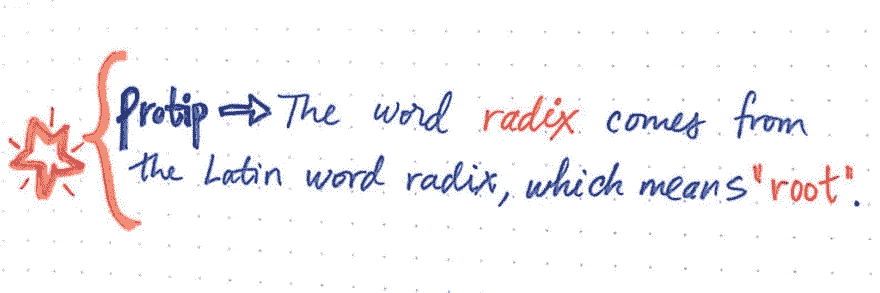 Protip ⇒ The word radix comes from
the Latin word radix, which means "root".